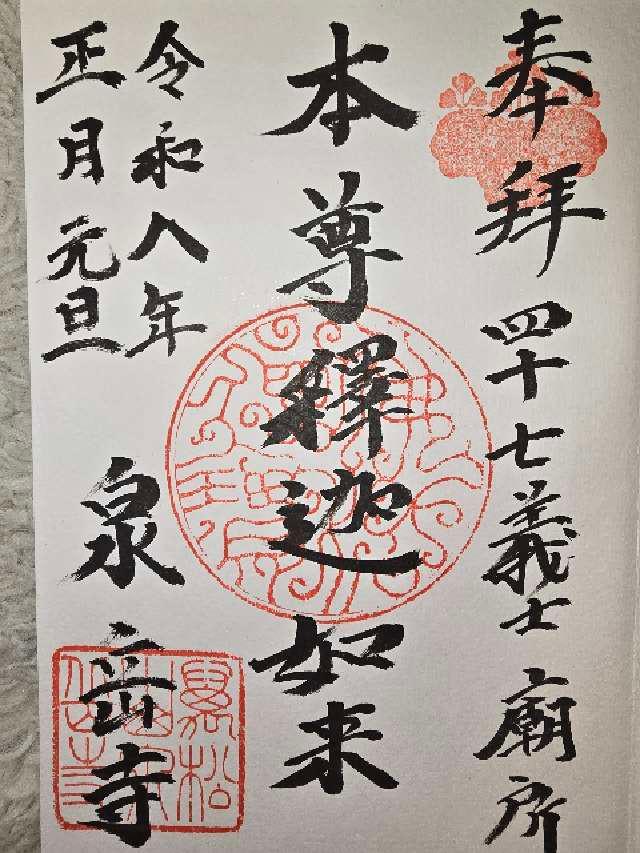 奉拝 四十七義士廟所
本尊釋迦如来
令和八年
正月元旦
泉岳寺